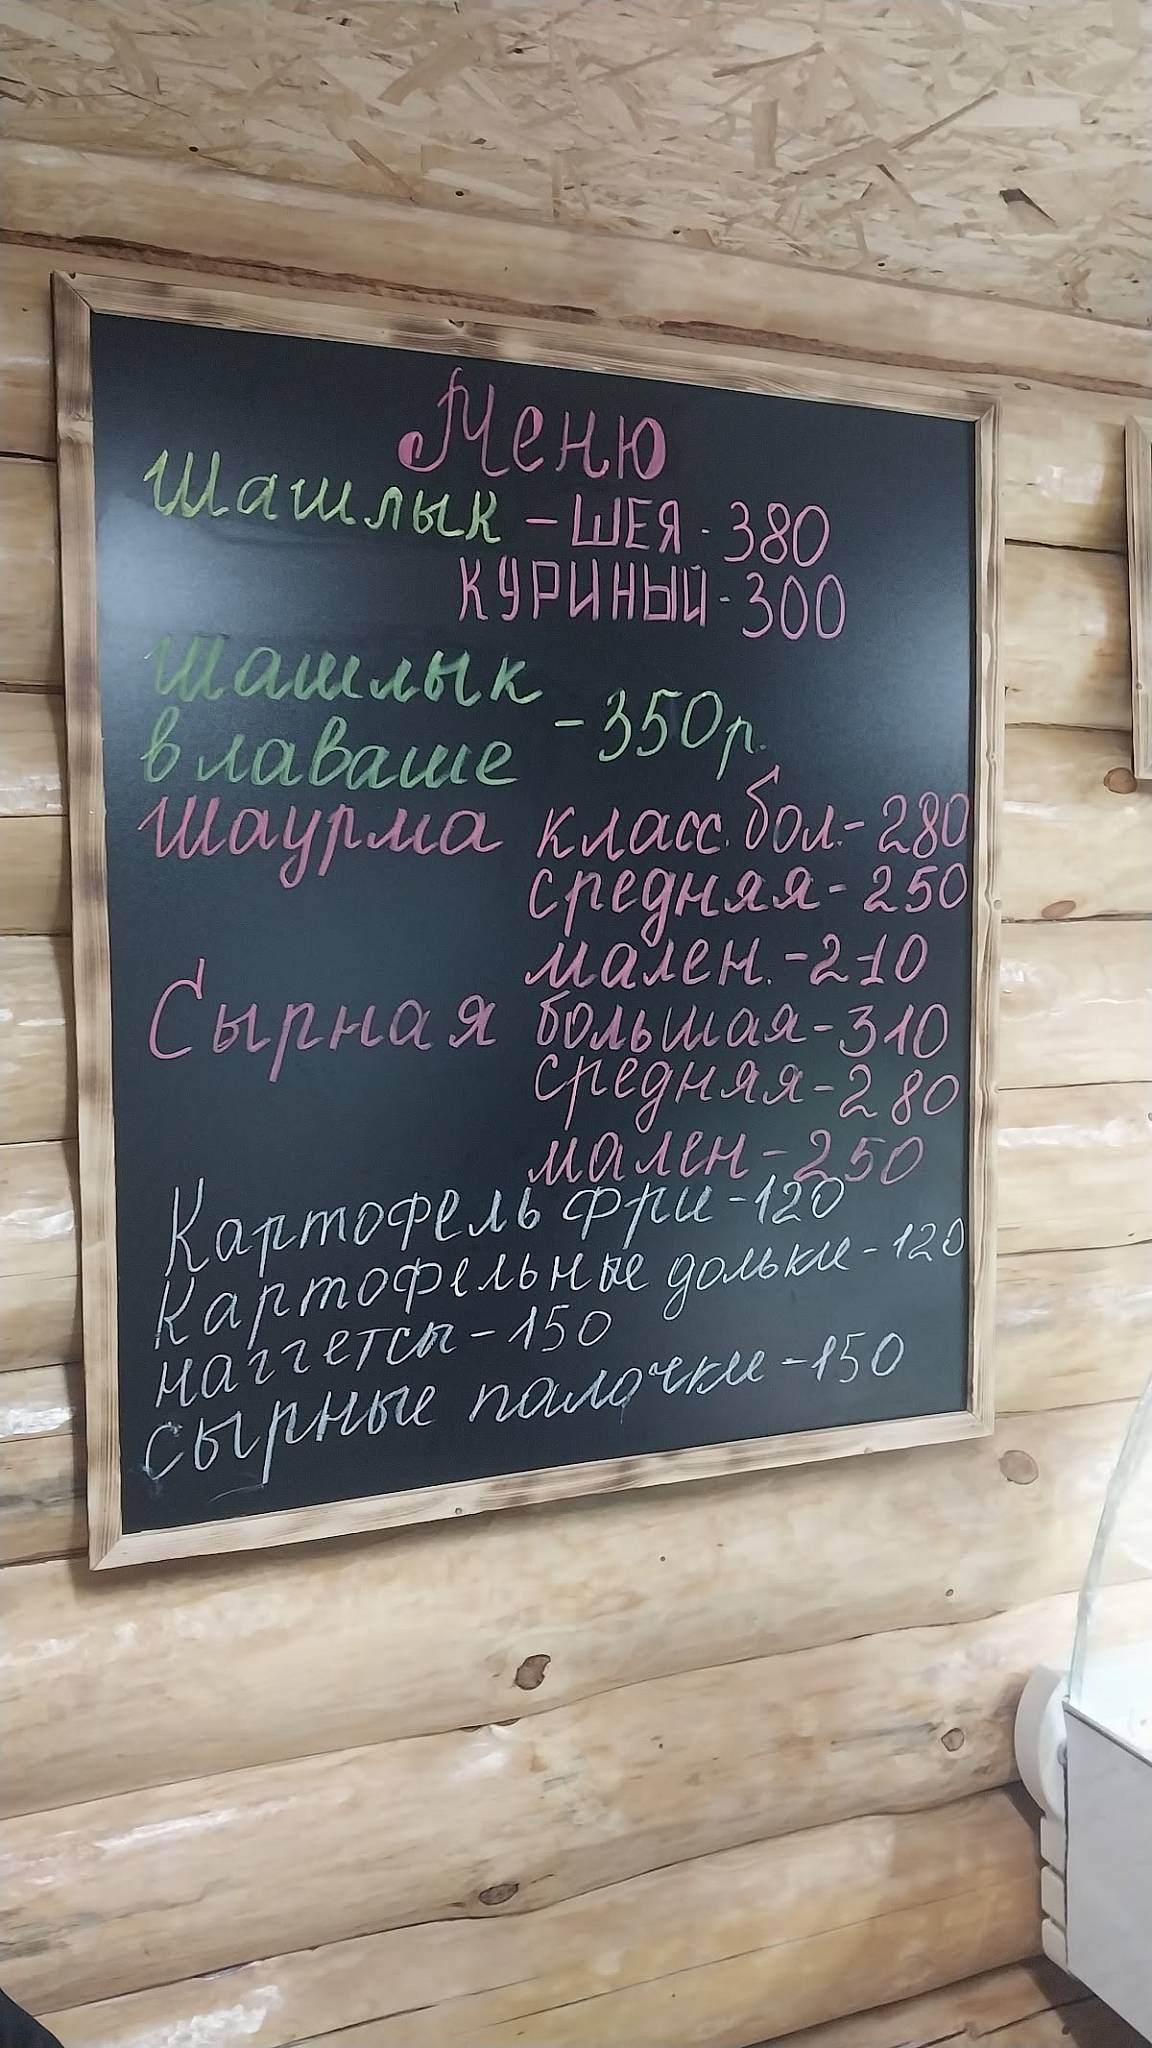 Меню
Шашлык - ШЕЯ - 380
КУРИНЫЙ - 300
Шашлык
в лаваше - 350р.
Шаурма класс. бол. - 280
средняя - 250
мален. - 210
Сырная большая - 310
средняя - 280
мален - 250
Картофель фри - 120
Картофельные дольки - 120
наггетсы - 150
сырные палочки - 150